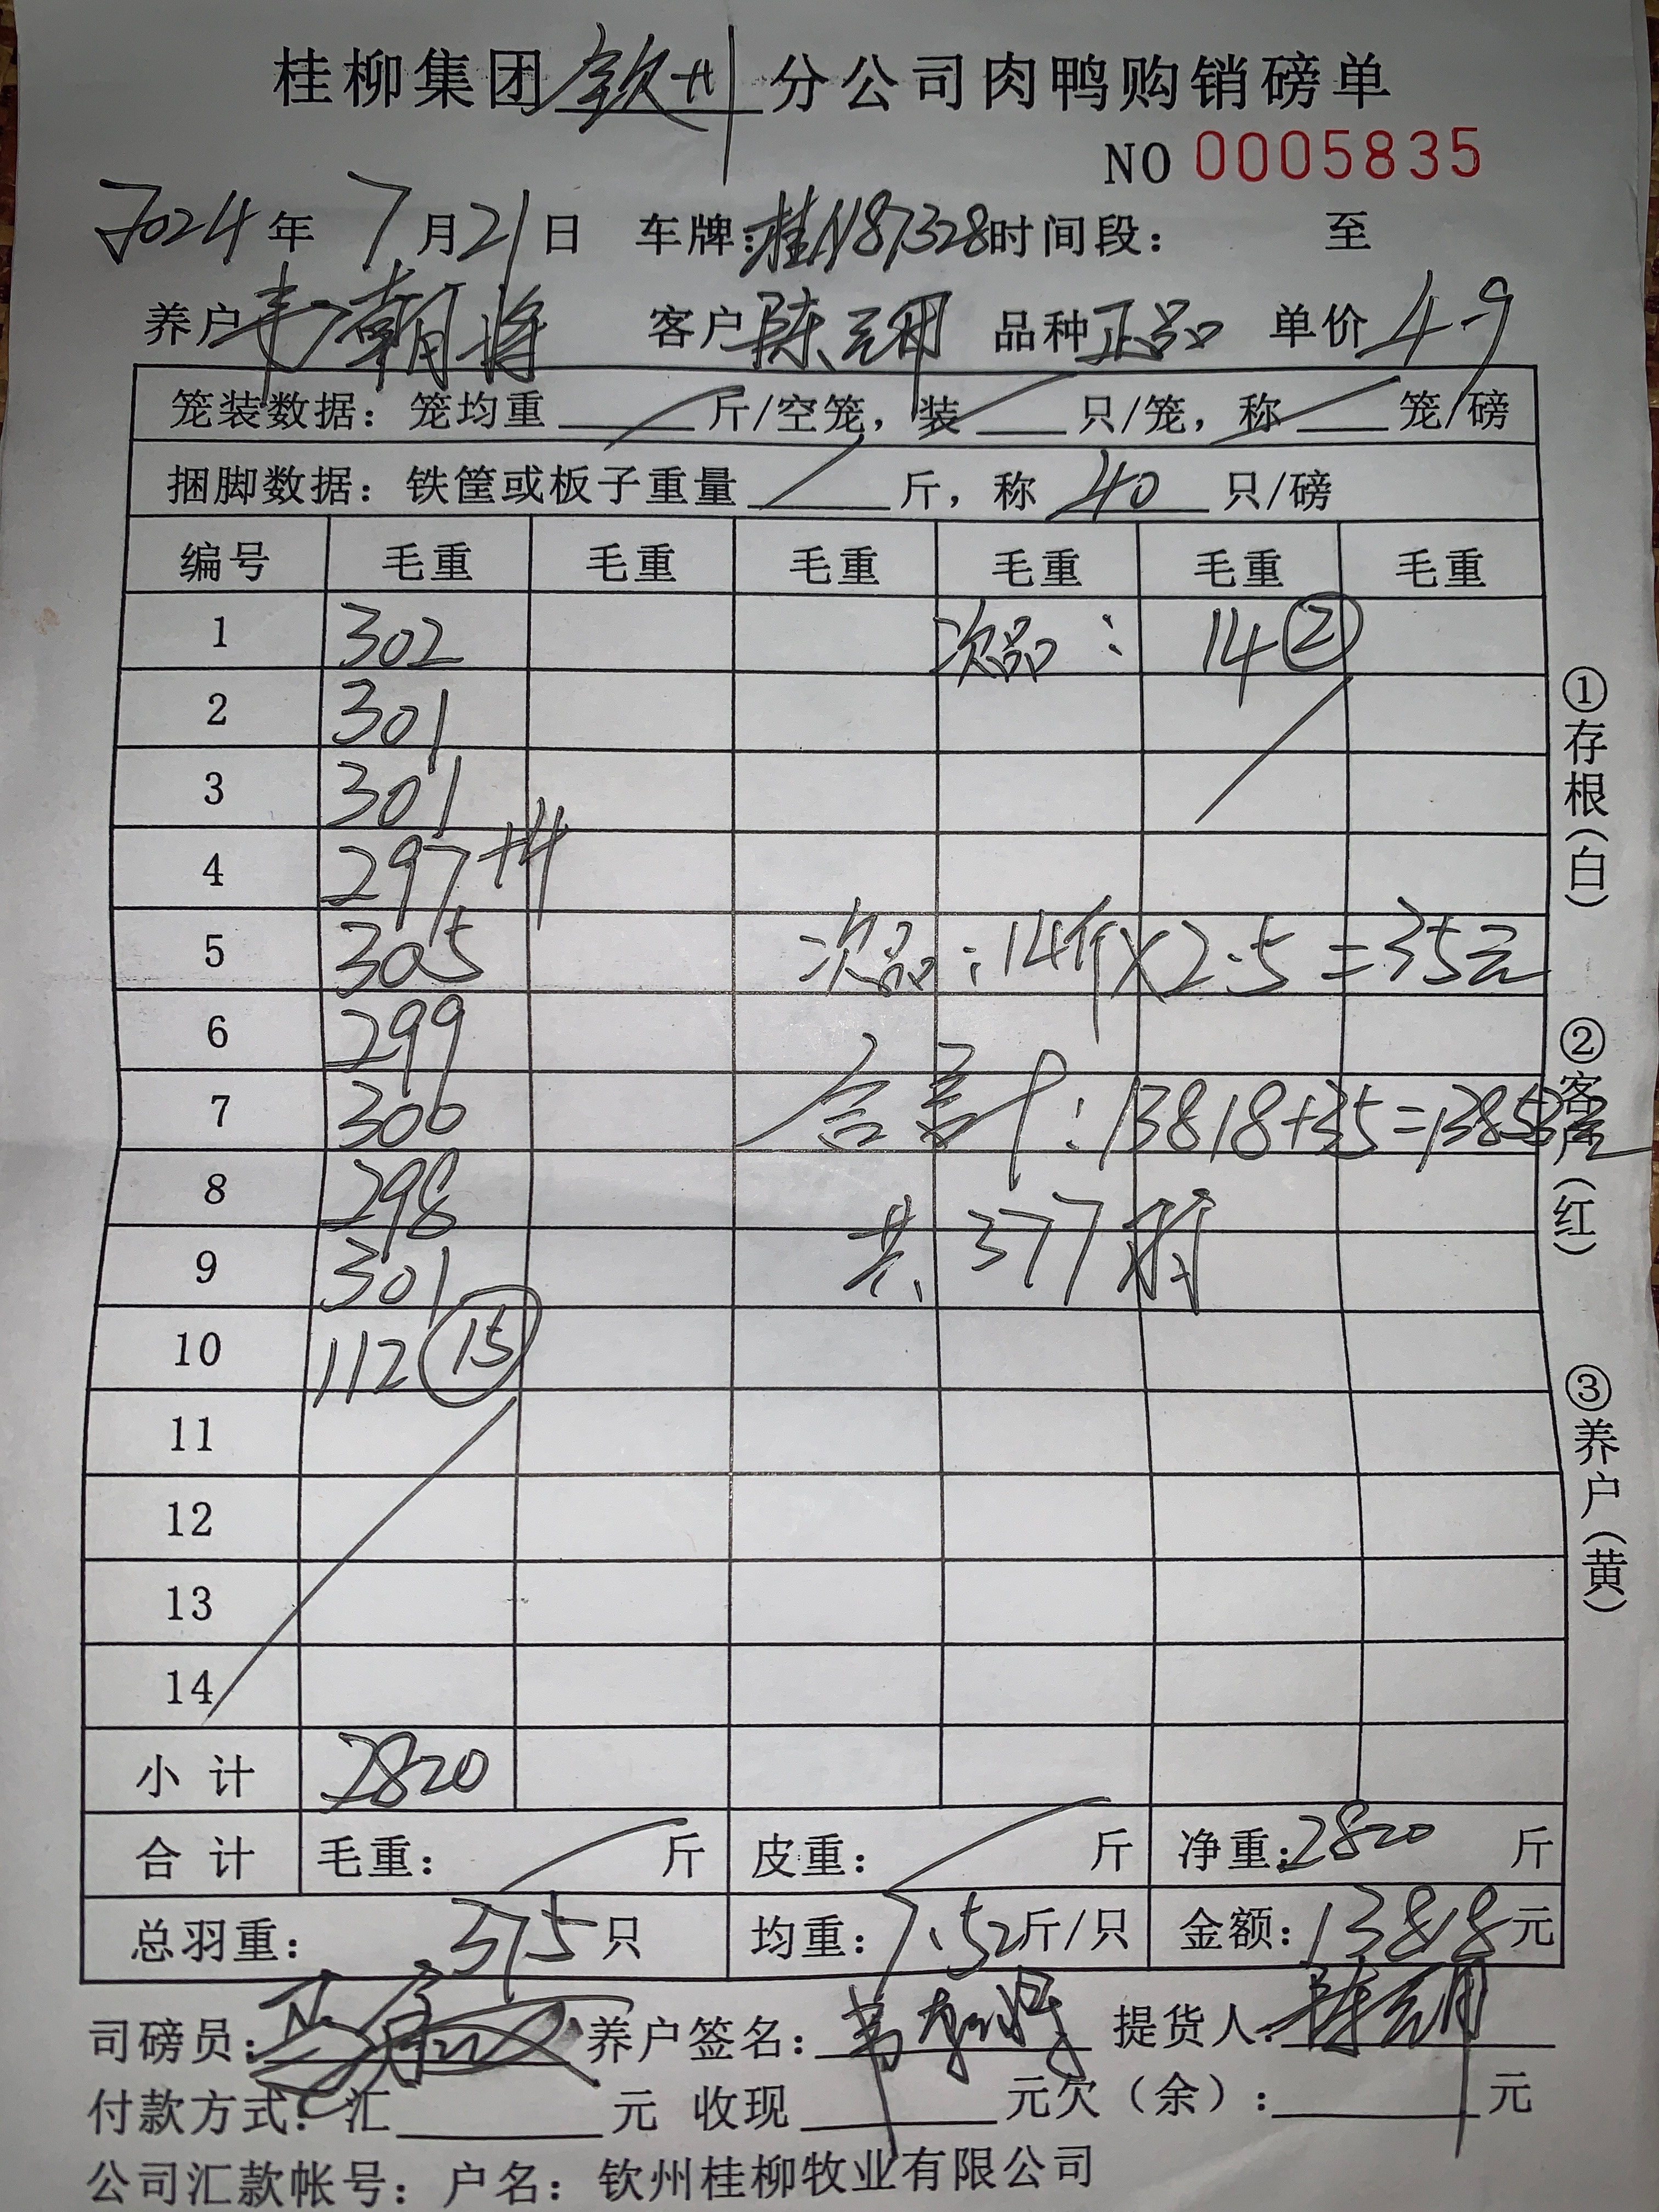 桂柳集团钦州分公司肉鸭购销磅单
NO 0005835
2024年7月21日 车牌:桂N87328时间段: 至
养户韦朝将 客户陈明 品种正品 单价4.9
笼装数据:笼均重 斤/空笼,装 只/笼,称 笼/磅
捆脚数据:铁筐或板子重量 斤,称 40 只/磅
编号 毛重 毛重 毛重 毛重 毛重 毛重
1 302 次品: 14②
2 301
3 301
4 297+4
5 305 次品:14斤×2.5=35元
6 299
7 300 合计:13818+35=13853元
8 298
9 301 共377只
10 112⑮
11
12
13
14
小计 2820
合计 毛重: 斤 皮重: 斤 净重:2820 斤
总羽重: 375只 均重:7.52斤/只 金额:13818元
司磅员: 养户签名: 提货人:陈明
付款方式:汇 元 收现 元欠(余): 元
公司汇款帐号:户名:钦州桂柳牧业有限公司
①存根(白)
②客户(红)
③养户(黄)